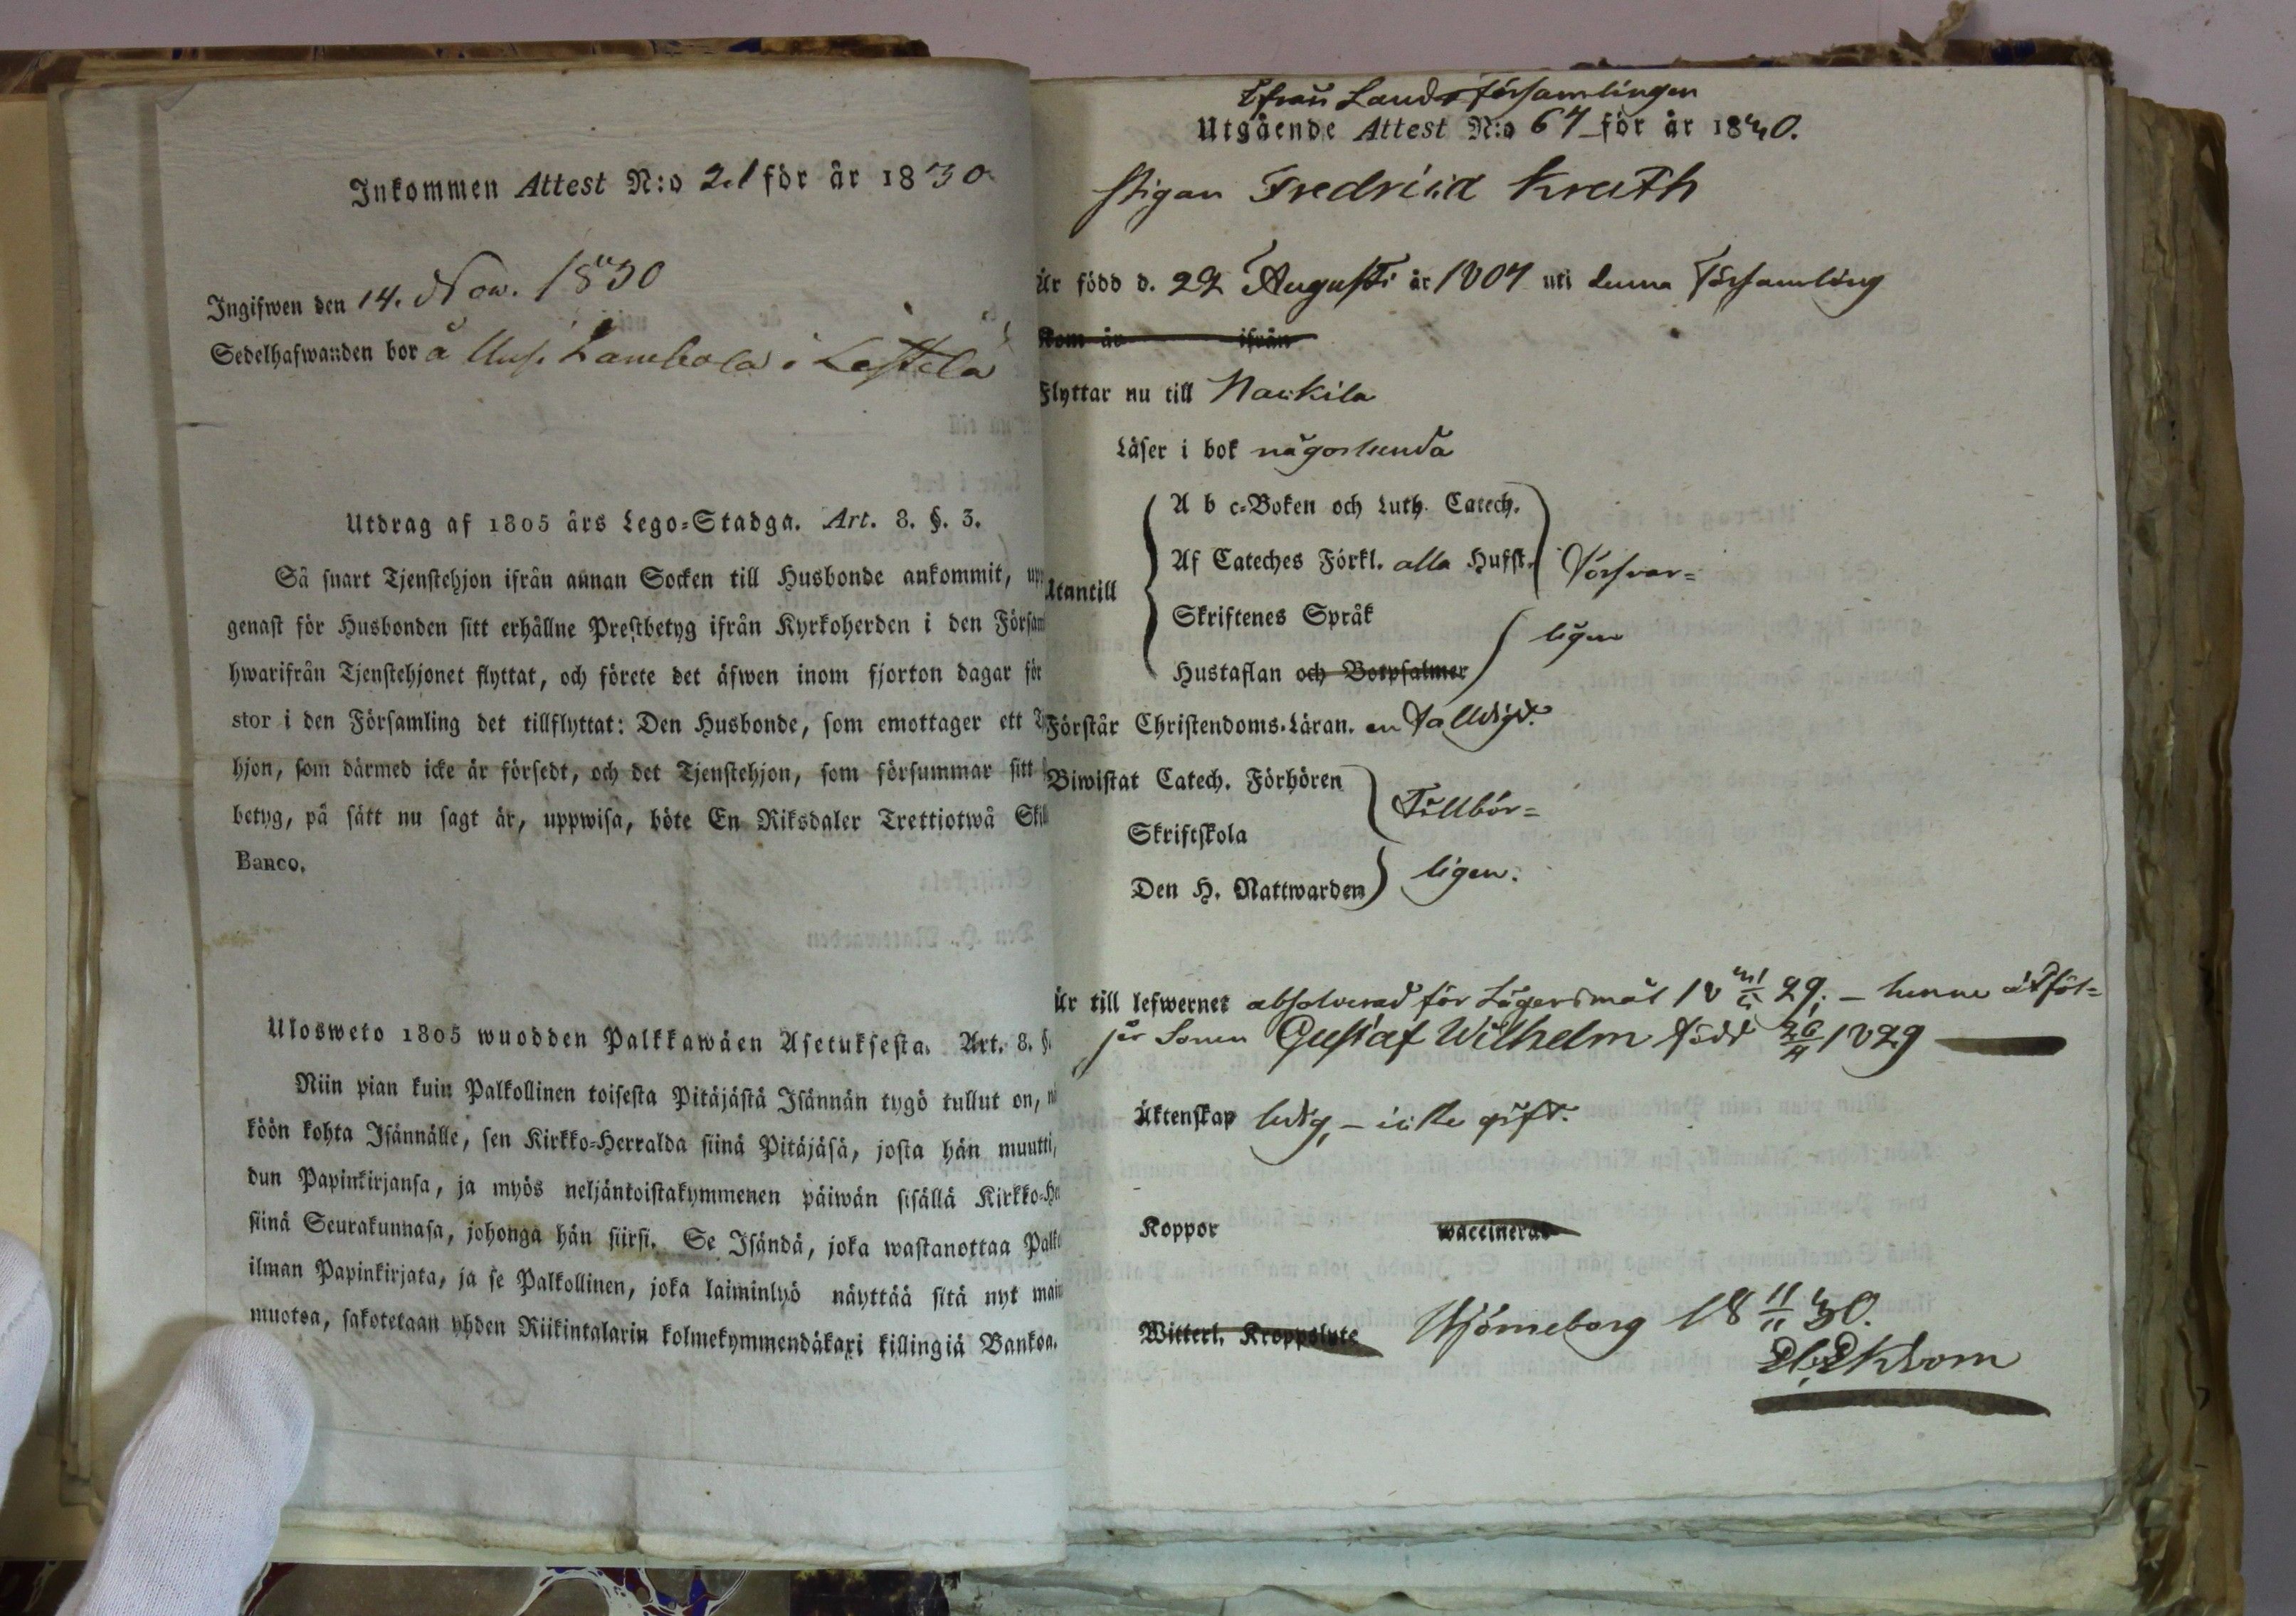 Inkommen Attest N:o 21 för år 1830
Ingifwen den 14. Nov. 1830
Sedelhafwanden bor å Lambola i Lestila
Utdrag af 1805 års Lego-Stadga. Art. 8. §. 3.
Så snart Tjenstehjon ifrån annan Socken till Husbonde ankommit, upp
genast för Husbonden sitt erhållne Prestbetyg ifrån Kyrkoherden i den Försam
hwarifrån Tjenstehjonet flyttat, och förete det äfwen inom fjorton dagar för
stor i den Församling det tillflyttat: Den Husbonde, som emottager ett
hjon, som därmed icke är försedt, och det Tjenstehjon, som försummar sitt
betyg, på sätt nu sagt är, uppwisa, böte En Riksdaler Trettiotwå Skill
Banco.
Ulosweto 1805 wuodden Palkkawäen Asetuksesta. Art. 8. §.
Niin pian kuin Palkollinen toisesta Pitäjästä Isännän tygö tullut on,
köön kohta Isännälle, sen Kirkko-Herralda siinä Pitäjäsä, josta hän muutti,
dun Papinkirjansa, ja myös neljäntoistakymmenen päiwän sisällä Kirkko-He
siinä Seurakunnasa, johonga hän siirsi. Se Isändä, joka wastanottaa Palk
ilman Papinkirjata, ja se Palkollinen, joka laiminlyö näyttää sitä nyt main
muotoa, sakotetaan yhden Riikintalarin kolmekymmendäkaxi killingiä Bankoa.
Ifrån Landsförsamlingen
Utgående Attest N:o 67 för år 1830.
Pigan Fredrica Krath
Är född d. 22 Augusti år 1807 uti denna Församling
Kom år ifrån
Flyttar nu till Nackila
Läser i bok någorlunda
Utantill
A b c-Boken och Luth. Catech.
Af Cateches Förkl. alla Hufst. Försvar=
Skriftenes Språk
ligen
Hustaflan och Botpsalmer
Förstår Christendoms-Läran. enfalldigt.
Biwistat Catech. Förhören
Tillbör=
Skriftskola
Den H. Nattwarden ligen.
Är till lefwernet absolverad för Lägersmål 18 29. – henne åtföl=
jer Sonen Gustaf Wilhelm född 26/4 1829
Äktenskap ledig, – icke gift.
Koppor waccinerad
Witterl. Kroppslyte Björneborg 18 11/11 30.
Ekbom